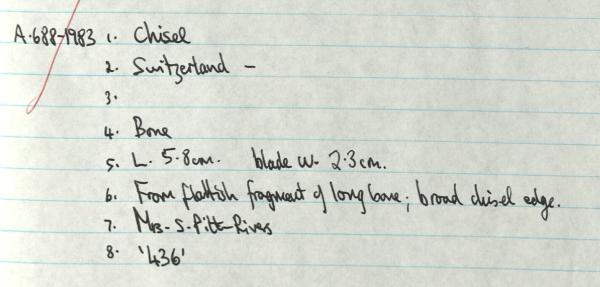 A.688-1983 1. Chisel
2. Switzerland -
3.
4. Bone
5. L. 5.8cm. blade w. 2.3cm.
6. From flattish fragment of long bone; broad chisel edge.
7. Mrs. S. Pitt-Rivers
8. '436'